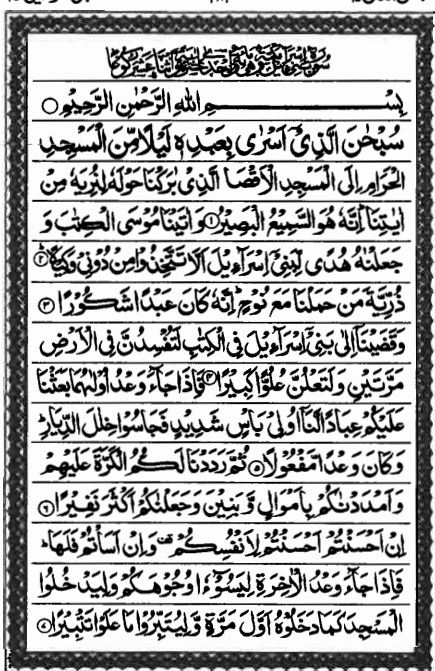 بِسْمِ اللهِ الرَّحْمٰنِ الرَّحِيْمِ
سُبْحٰنَ الَّذِيْٓ اَسْرٰى بِعَبْدِهٖ لَيْلًا مِّنَ الْمَسْجِدِ
الْحَرَامِ اِلَى الْمَسْجِدِ الْاَقْصَا الَّذِيْ بٰرَكْنَا حَوْلَهٗ لِنُرِيَهٗ مِنْ
اٰيٰتِنَا ؕ اِنَّهٗ هُوَ السَّمِيْعُ الْبَصِيْرُ ۝۱ وَ اٰتَيْنَا مُوْسَى الْكِتٰبَ وَ
جَعَلْنٰهُ هُدًى لِّبَنِيْٓ اِسْرَآءِيْلَ اَلَّا تَتَّخِذُوْا مِنْ دُوْنِيْ وَكِيْلًا ۝۲
ذُرِّيَّةَ مَنْ حَمَلْنَا مَعَ نُوْحٍ ؕ اِنَّهٗ كَانَ عَبْدًا شَكُوْرًا ۝۳
وَ قَضَيْنَآ اِلٰى بَنِيْٓ اِسْرَآءِيْلَ فِي الْكِتٰبِ لَتُفْسِدُنَّ فِي الْاَرْضِ
مَرَّتَيْنِ وَ لَتَعْلُنَّ عُلُوًّا كَبِيْرًا ۝۴ فَاِذَا جَآءَ وَعْدُ اُوْلٰىهُمَا بَعَثْنَا
عَلَيْكُمْ عِبَادًا لَّنَآ اُولِيْ بَاْسٍ شَدِيْدٍ فَجَاسُوْا خِلٰلَ الدِّيَارِ ؕ
وَ كَانَ وَعْدًا مَّفْعُوْلًا ۝۵ ثُمَّ رَدَدْنَا لَكُمُ الْكَرَّةَ عَلَيْهِمْ
وَ اَمْدَدْنٰكُمْ بِاَمْوَالٍ وَّ بَنِيْنَ وَ جَعَلْنٰكُمْ اَكْثَرَ نَفِيْرًا ۝۶
اِنْ اَحْسَنْتُمْ اَحْسَنْتُمْ لِاَنْفُسِكُمْ وَ اِنْ اَسَاْتُمْ فَلَهَا ؕ
فَاِذَا جَآءَ وَعْدُ الْاٰخِرَةِ لِيَسُوْٓءٗا وُجُوْهَكُمْ وَ لِيَدْخُلُوا
الْمَسْجِدَ كَمَا دَخَلُوْهُ اَوَّلَ مَرَّةٍ وَّ لِيُتَبِّرُوْا مَا عَلَوْا تَتْبِيْرًا ۝۷